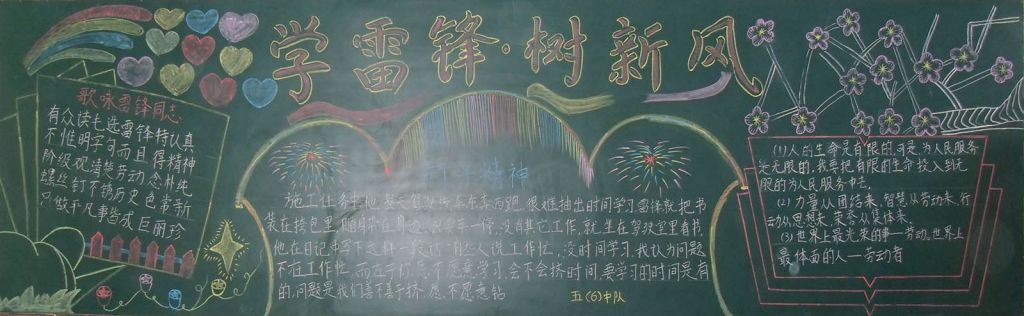 学雷锋·树新风
歌咏雷锋同志
有众读毛选雷锋特认真
不惟明学习而且得精神
阶级观清楚劳动念朴纯
螺丝钉不锈历史色常新
只做平凡事皆成巨丽珍
钉子精神
施工任务
他每天
开车东奔西跑,很难抽出时间学习,雷锋就把书
装在挎包里,
没有其它工作,就坐在驾驶室里看书,
他在日记中写下这样一段话:有些人说工作忙,没时间学习,我认为问题
不在工作忙,而在于你愿不愿意学习,会不会挤时间,要学习的时间是有
的,问题是我们善不善于挤,愿不愿意钻
五(6)中队
(1)人的生命是有限的,可是,为人民服务
是无限的,我要把有限的生命,投入到无
限的为人民服务中去。
(2)力量从团结来,智慧从劳动来,行
动从思想来,荣誉从集体来。
(3)世界上最光荣的事—劳动。世界上
最体面的人—劳动者